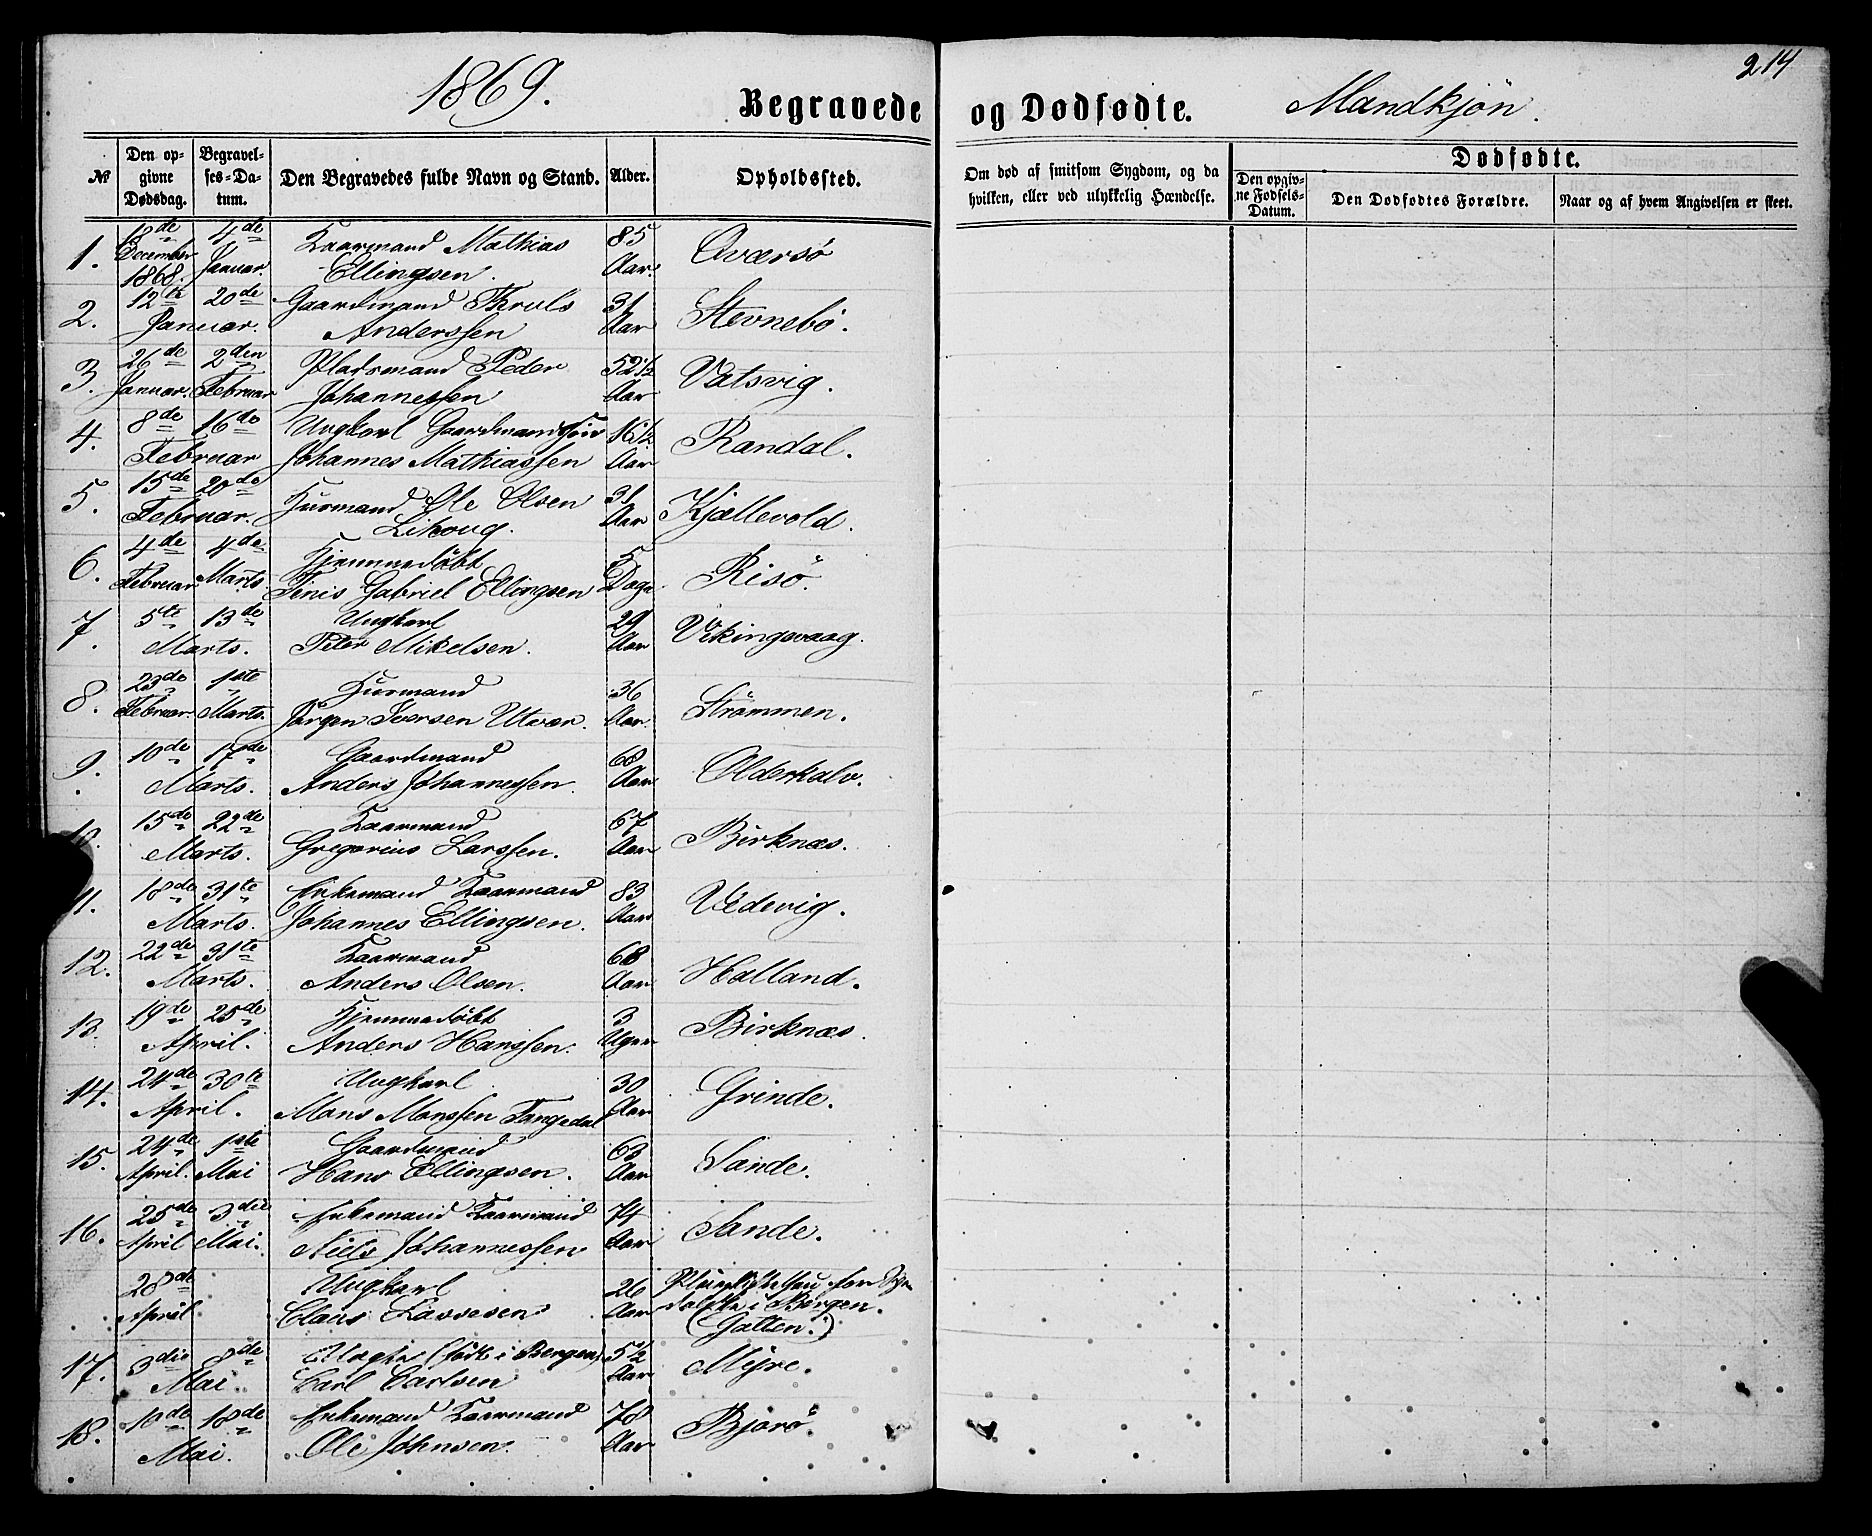 1869.
Begravede og Dødfødte. Mandkjøn.
214
№
Den opgivne Dødsdag.
Begravelses-Datum.
Den Begravedes fulde Navn og Stand.
Alder.
Opholdssted.
Om død af smitsom Sygdom, og da hvilken, eller ved ulykkelig Hændelse.
Dødfødte.
Den opgivne Fødsels-Datum.
Den Dødfødtes Forældre.
Naar og af hvem Angivelsen er skeet.
1. 18de December 1868. 4de Januar. Kaarmand Mathias Ellingsen. 85 Aar.
2. 12te 20de Januar. Gaardmand Thruls Anderssen 31 Aar Stevnebö.
3. 26de Januar. 2den Februar Pladsmand Peder Johannessen 52 1/2 Aar Vatsvig.
4. 8de 16de Februar Ungkarl Johannes Mathiassen 16 1/2 Aar Randal.
5. 15de 20de Februar. Huusmand Ole Olsen 31 Aar Kjellevold.
6. 4de Februar 4de Marts. Hjemmedöbt Gabriel Ellingsen 5 Dage Risö.
7. 5te 13de Marts. Ungkarl Peter Mikelsen. 29 Aar Vikingevaag.
8. 23de Februar. 1ste Marts. Huusmand Jörgen Iversen Utvær. 36 Aar. Strömmen.
9. 10de 17de Marts. Gaardmand Anders Johannessen. 68 Aar Olderkalv.
10. 15de 22de Marts. Kaarmand Gregorius Larssen. 67 Aar Birknæs.
11. 18de 31te Marts. Enkemand Kaarmand Johannes Ellingsen. 83 Aar Vedevig.
12. 22de 31te Marts. Kaarmand Anders Olsen. 68 Aar Halland.
13. 19de 25de April. Hjemmedöbt Anders Hanssen. 3 Uger Birknæs.
14. 24de 30te April. Ungkarl Mons Monssen Tangedal 30 Aar Grinde.
15. 24de April. 1ste Mai Gaardmand Hans Ellingsen. 63 Aar Sande.
16. 25de April 3die Mai. Enkemand Kaarmand Niels Johannessen 74 Aar Sande.
28de April Ungkarl Claus Lassesen 26 Aar i Bergen.
17. 3die 8de Mai. (födt i Bergen) Carl Carlsen 5 1/2 Aar Myre.
18. 10de 18de Mai. Enkemand Kaarmand Ole Johnsen. 78 Aar Bjorö.